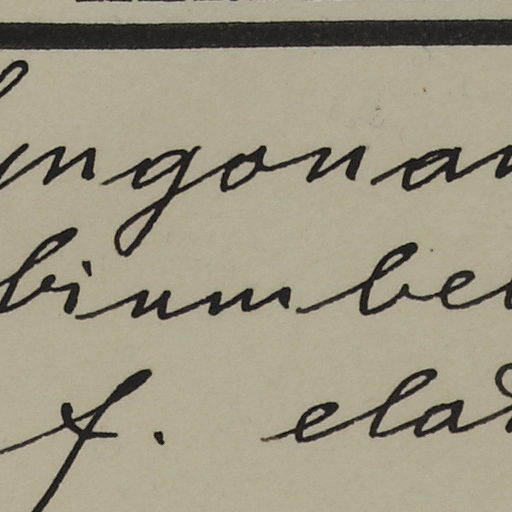 yngonan
biumbel
f. elat